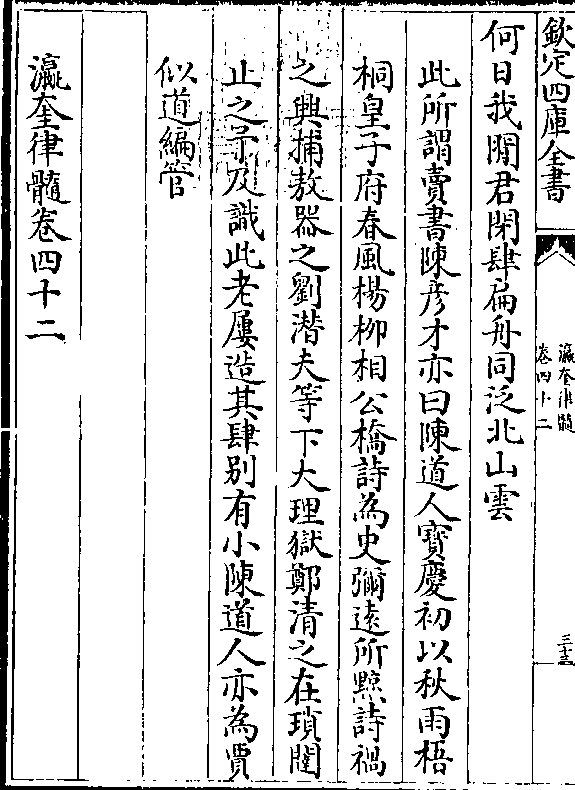 欽定四庫全書
瀛奎律髓
卷四十二
三十三
何日我閒君閉肆扁舟同泛北山雲
此所謂賣書陳彦才亦曰陳道人寳慶初以秋雨梧
桐皇子府春風楊柳相公橋詩為史彌逺所黥詩禍
之興捕敖器之劉潛夫等下大理獄鄭清之在瑣闥
止之予及識此老屢造其肆别有小陳道人亦為賈
似道編管
瀛奎律髓卷四十二